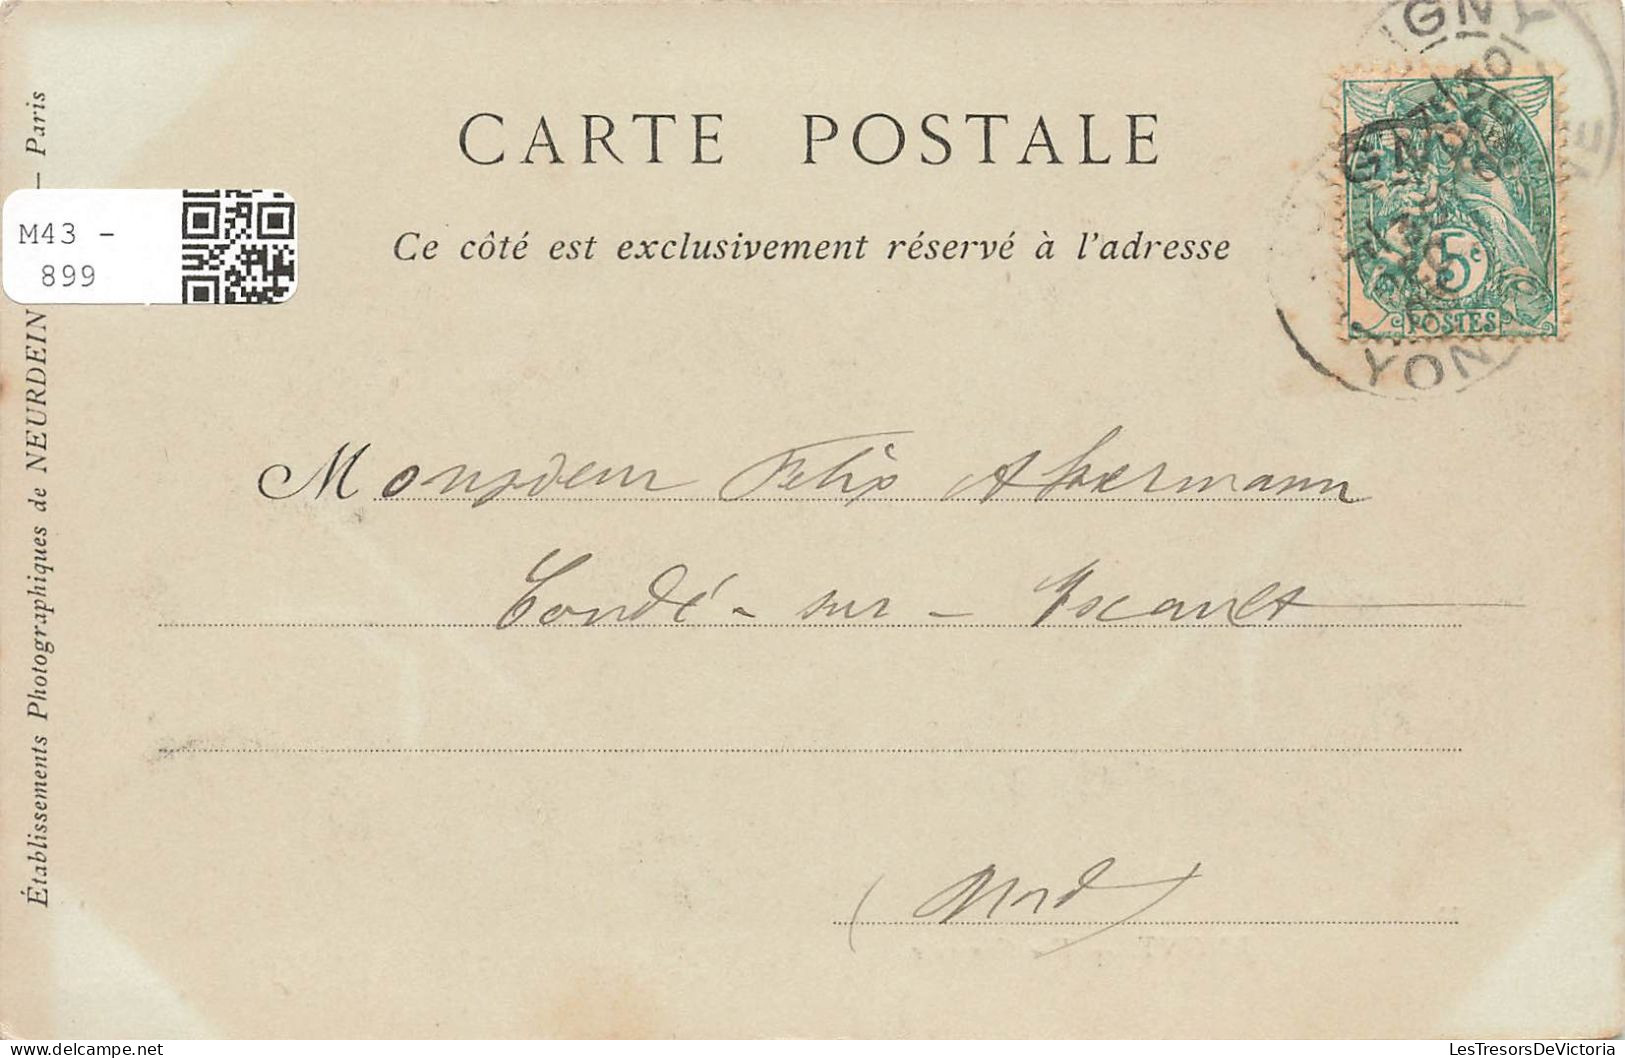 CARTE POSTALE
Ce côté est exclusivement réservé à l'adresse
M43 -
899
Établissements Photographiques de NEURDEIN — Paris
IGNY
NE
GNO
YON
5c
POSTES
Monsieur Felix Akermann
Condé - sur - Escaut
(Nord)
LesTresorsDeVictoria